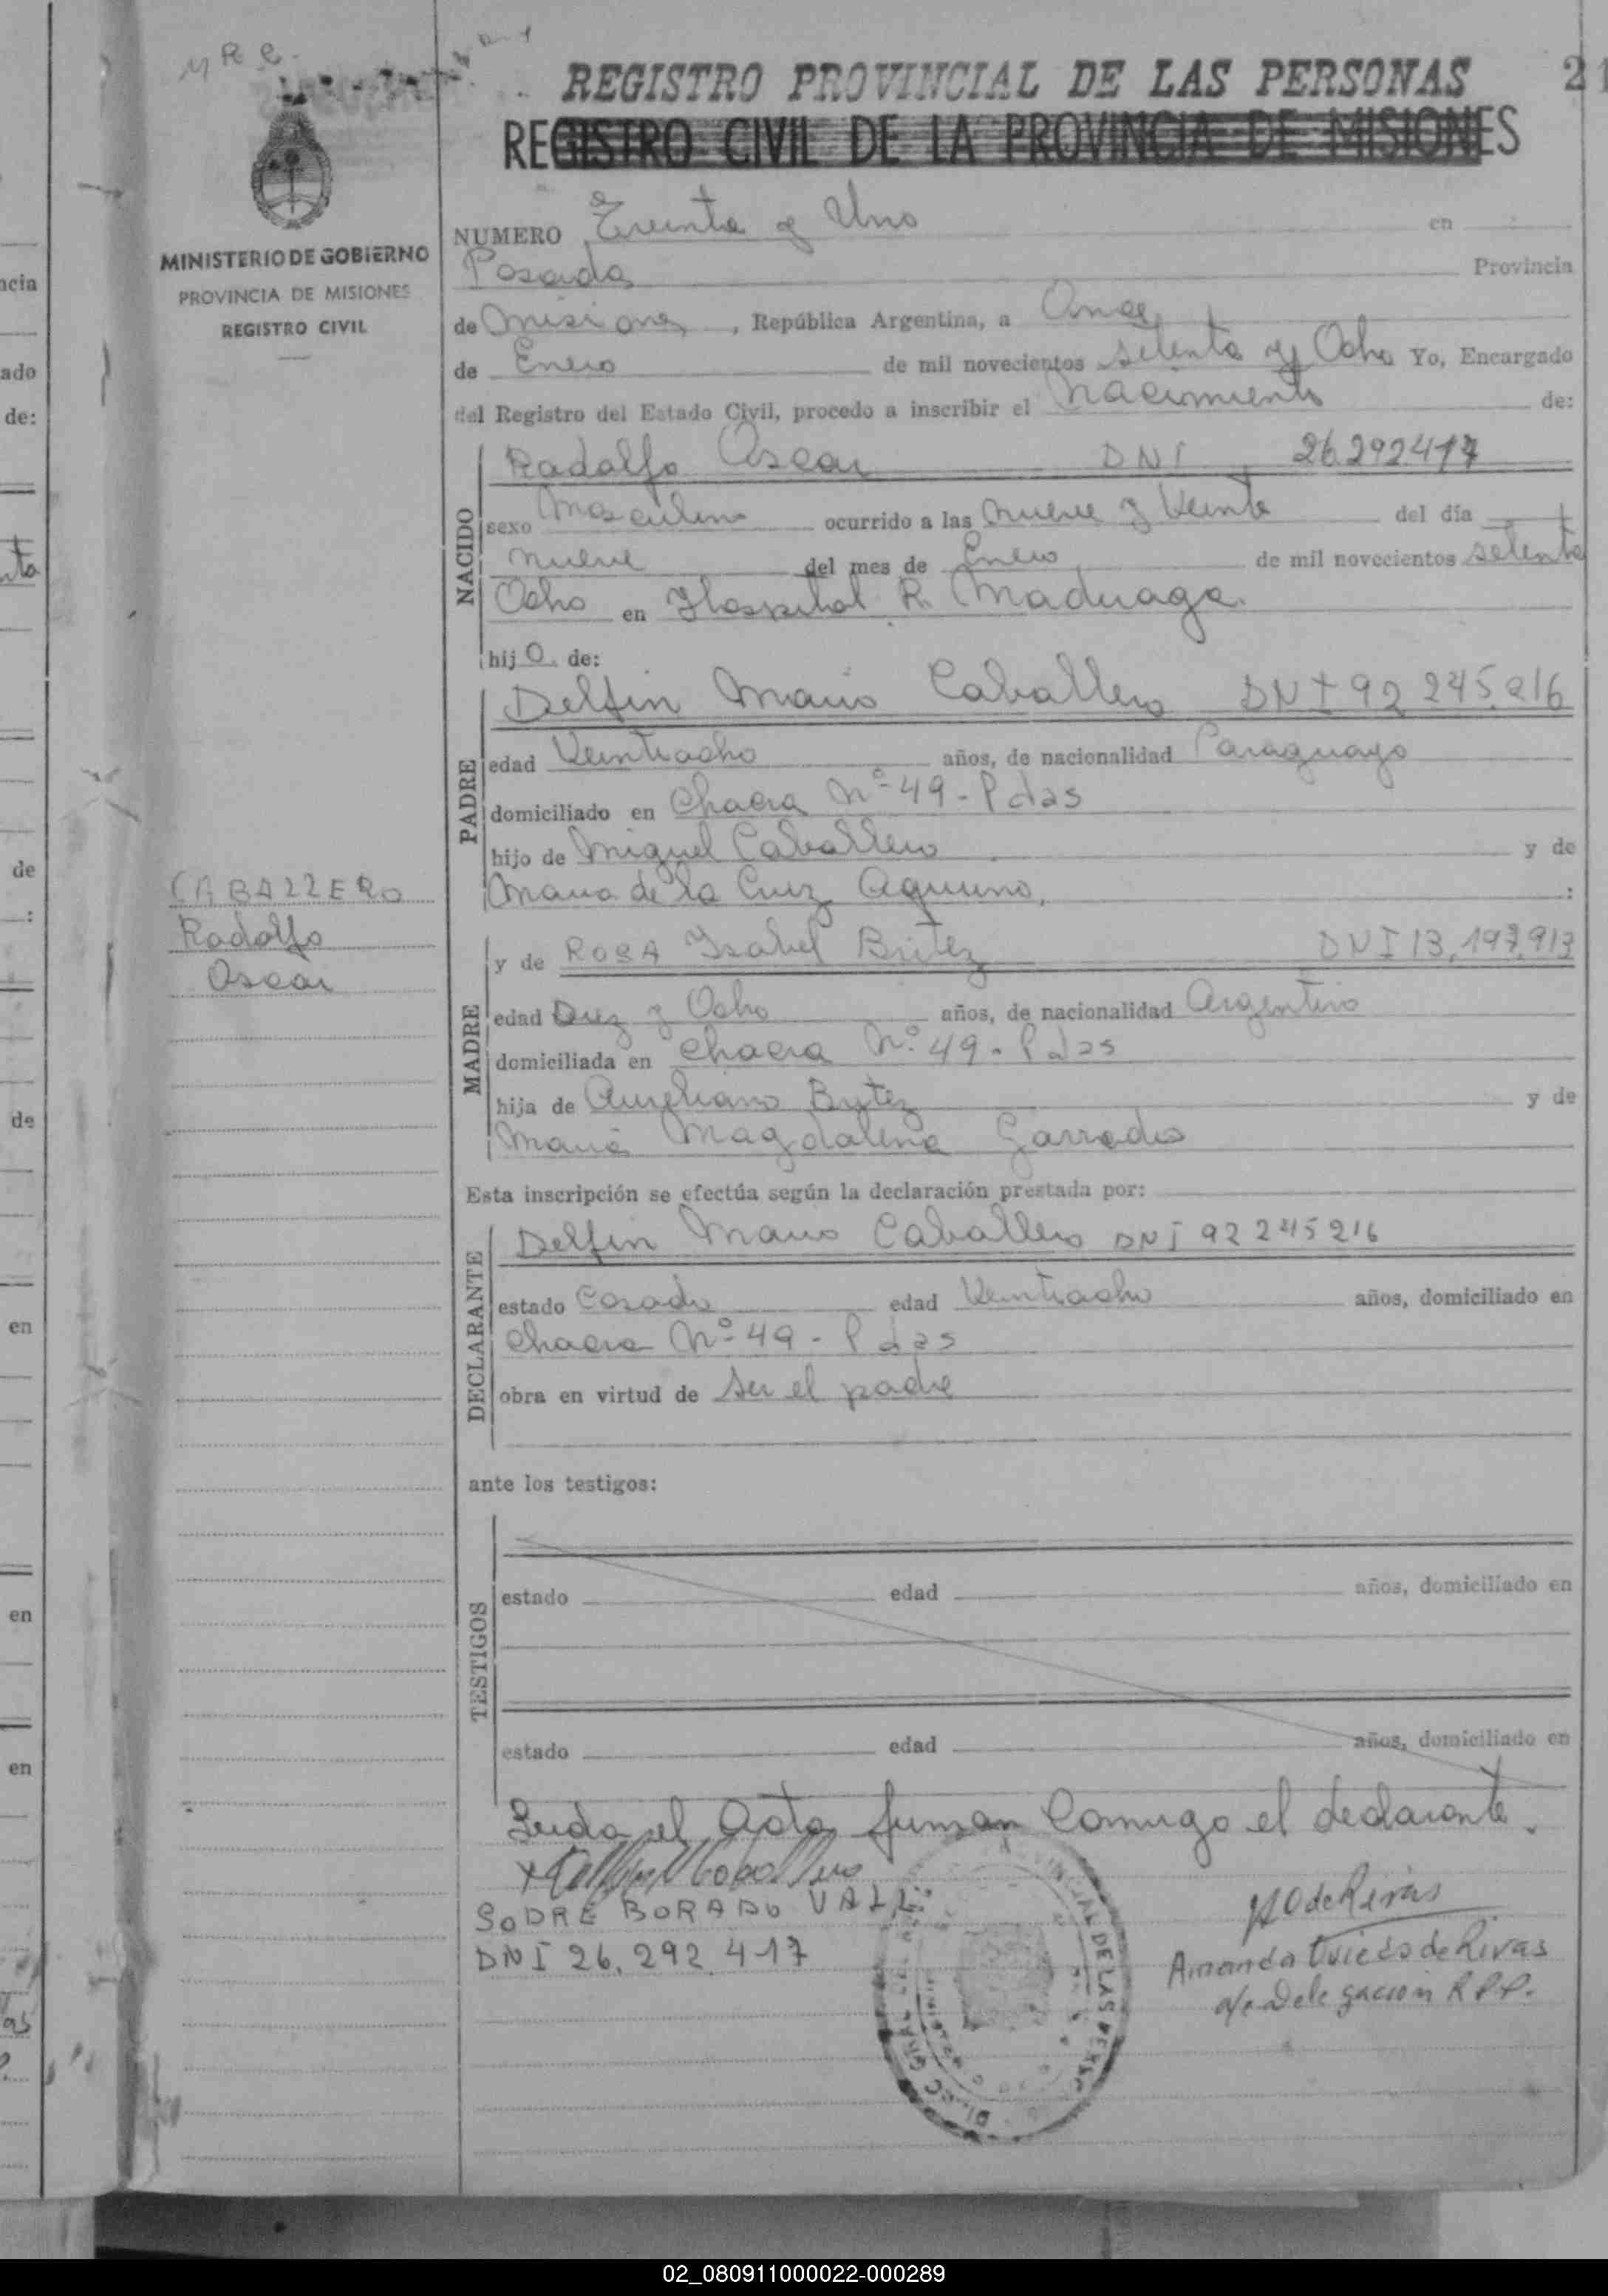 M R C.
REGISTRO PROVINCIAL DE LAS PERSONAS
21
REGISTRO CIVIL DE LA PROVINCIA DE MISIONES
MINISTERIO DE GOBIERNO
PROVINCIA DE MISIONES
REGISTRO CIVIL
NUMERO Treinta y Uno en
Posadas Provincia
de Misiones, República Argentina, a Once
de Enero de mil novecientos setenta y Ocho Yo, Encargado
del Registro del Estado Civil, procedo a inscribir el Nacimiento de:
NACIDO
Rodolfo Oscar DNI 26.292.417
sexo Masculino ocurrido a las nueve y Veinte del día
nueve del mes de Enero de mil novecientos setenta
Ocho en Hospital R. Madriaga
hijo de:
PADRE
Delfin Mario Caballero DNI 92 245.216
edad Veintiocho años, de nacionalidad Paraguayo
domiciliado en Chacra Nº 49 - Pdas
hijo de Miguel Caballero y de
Maria de la Cruz Aquino, :
CABALLERO
Rodolfo
Oscar
MADRE
y de ROSA Isabel Britez DNI 13.197.913
edad Diez y Ocho años, de nacionalidad Argentina
domiciliada en Chacra Nº 49 - Pdas
hija de Aureliano Britez y de
Maria Magdalena Garrado
Esta inscripción se efectúa según la declaración prestada por:
DECLARANTE
Delfin Mario Caballero DNI 92 245 216
estado Casado edad Veintiocho años, domiciliado en
Chacra Nº 49 - Pdas
obra en virtud de ser el padre
ante los testigos:
TESTIGOS
estado edad años, domiciliado en
estado edad años, domiciliado en
Leida el Acta firman Conmigo el declarante.
SODRE BORADO VALE:
DNI 26.292.417
AO de Rivas
Amanda Oviedo de Rivas
a/c Delegacion R.P.P.
02_080911000022-000289